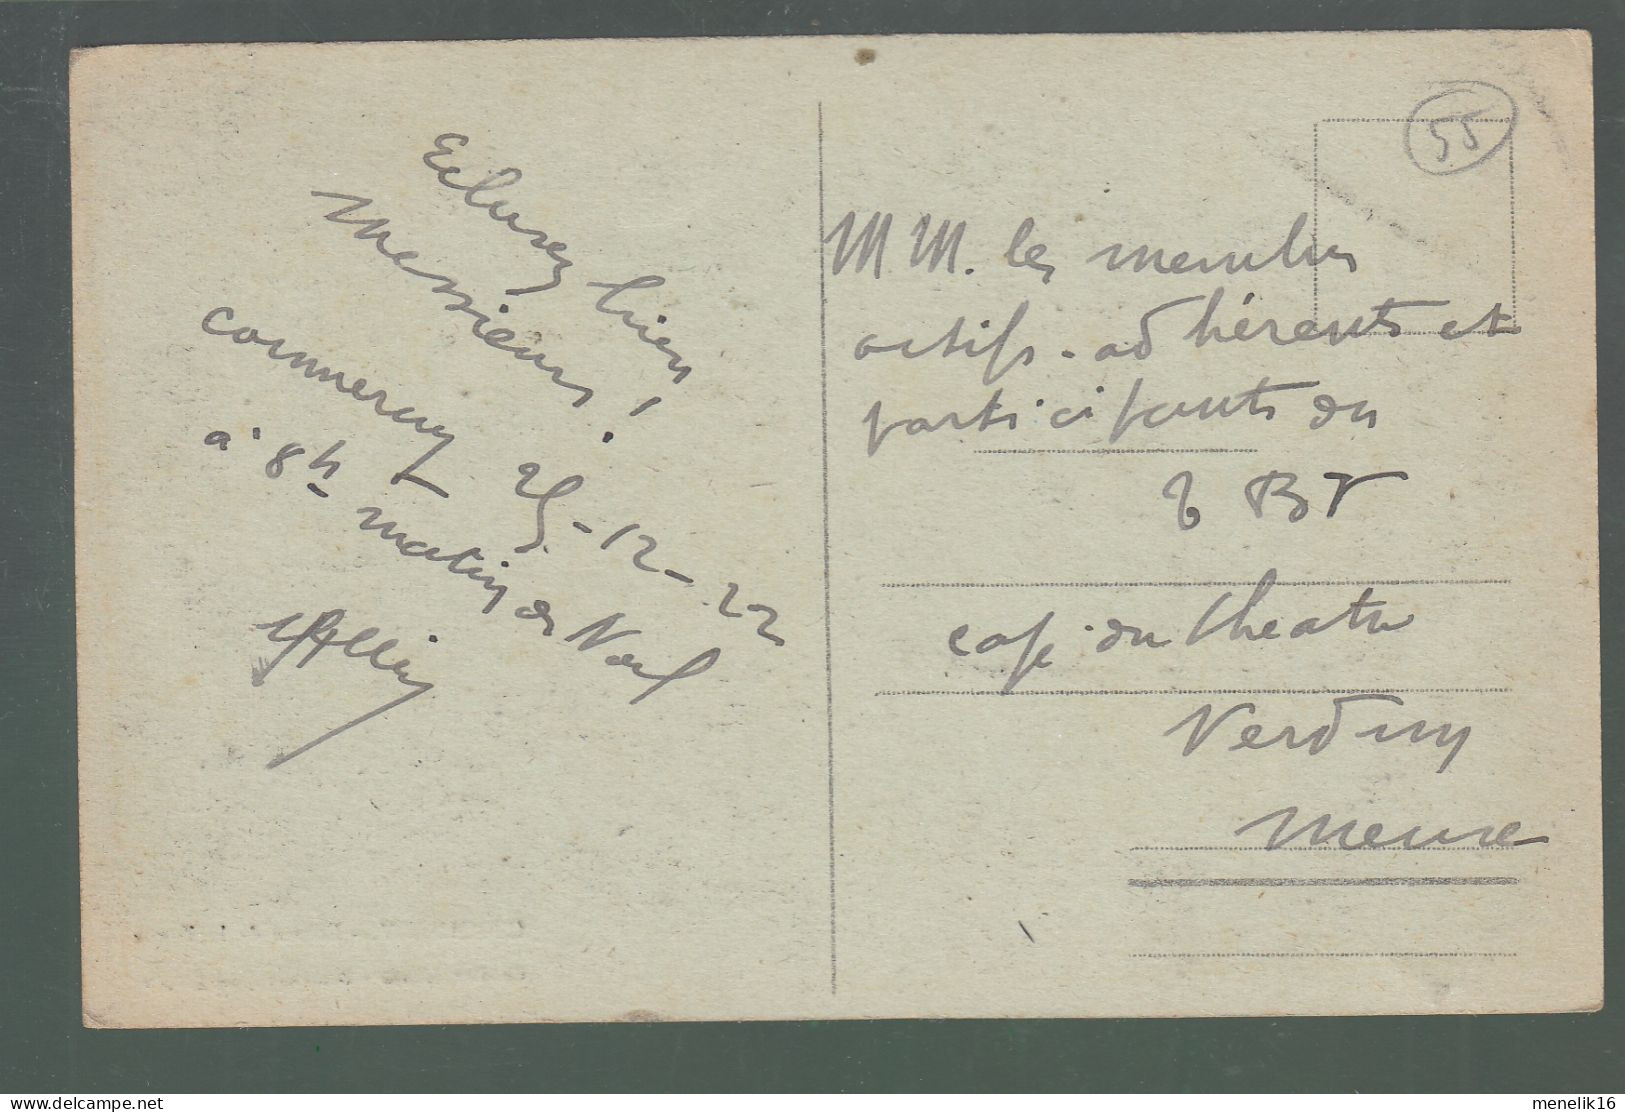 Eclusez bien
Messieurs !
commercy 25-12-22
à 8h matin de Noel
55
MM. les membres
actifs-adhérents et
participants du
BT
café du theatre
Verdun
Meuse
delcampe.net
menelik16